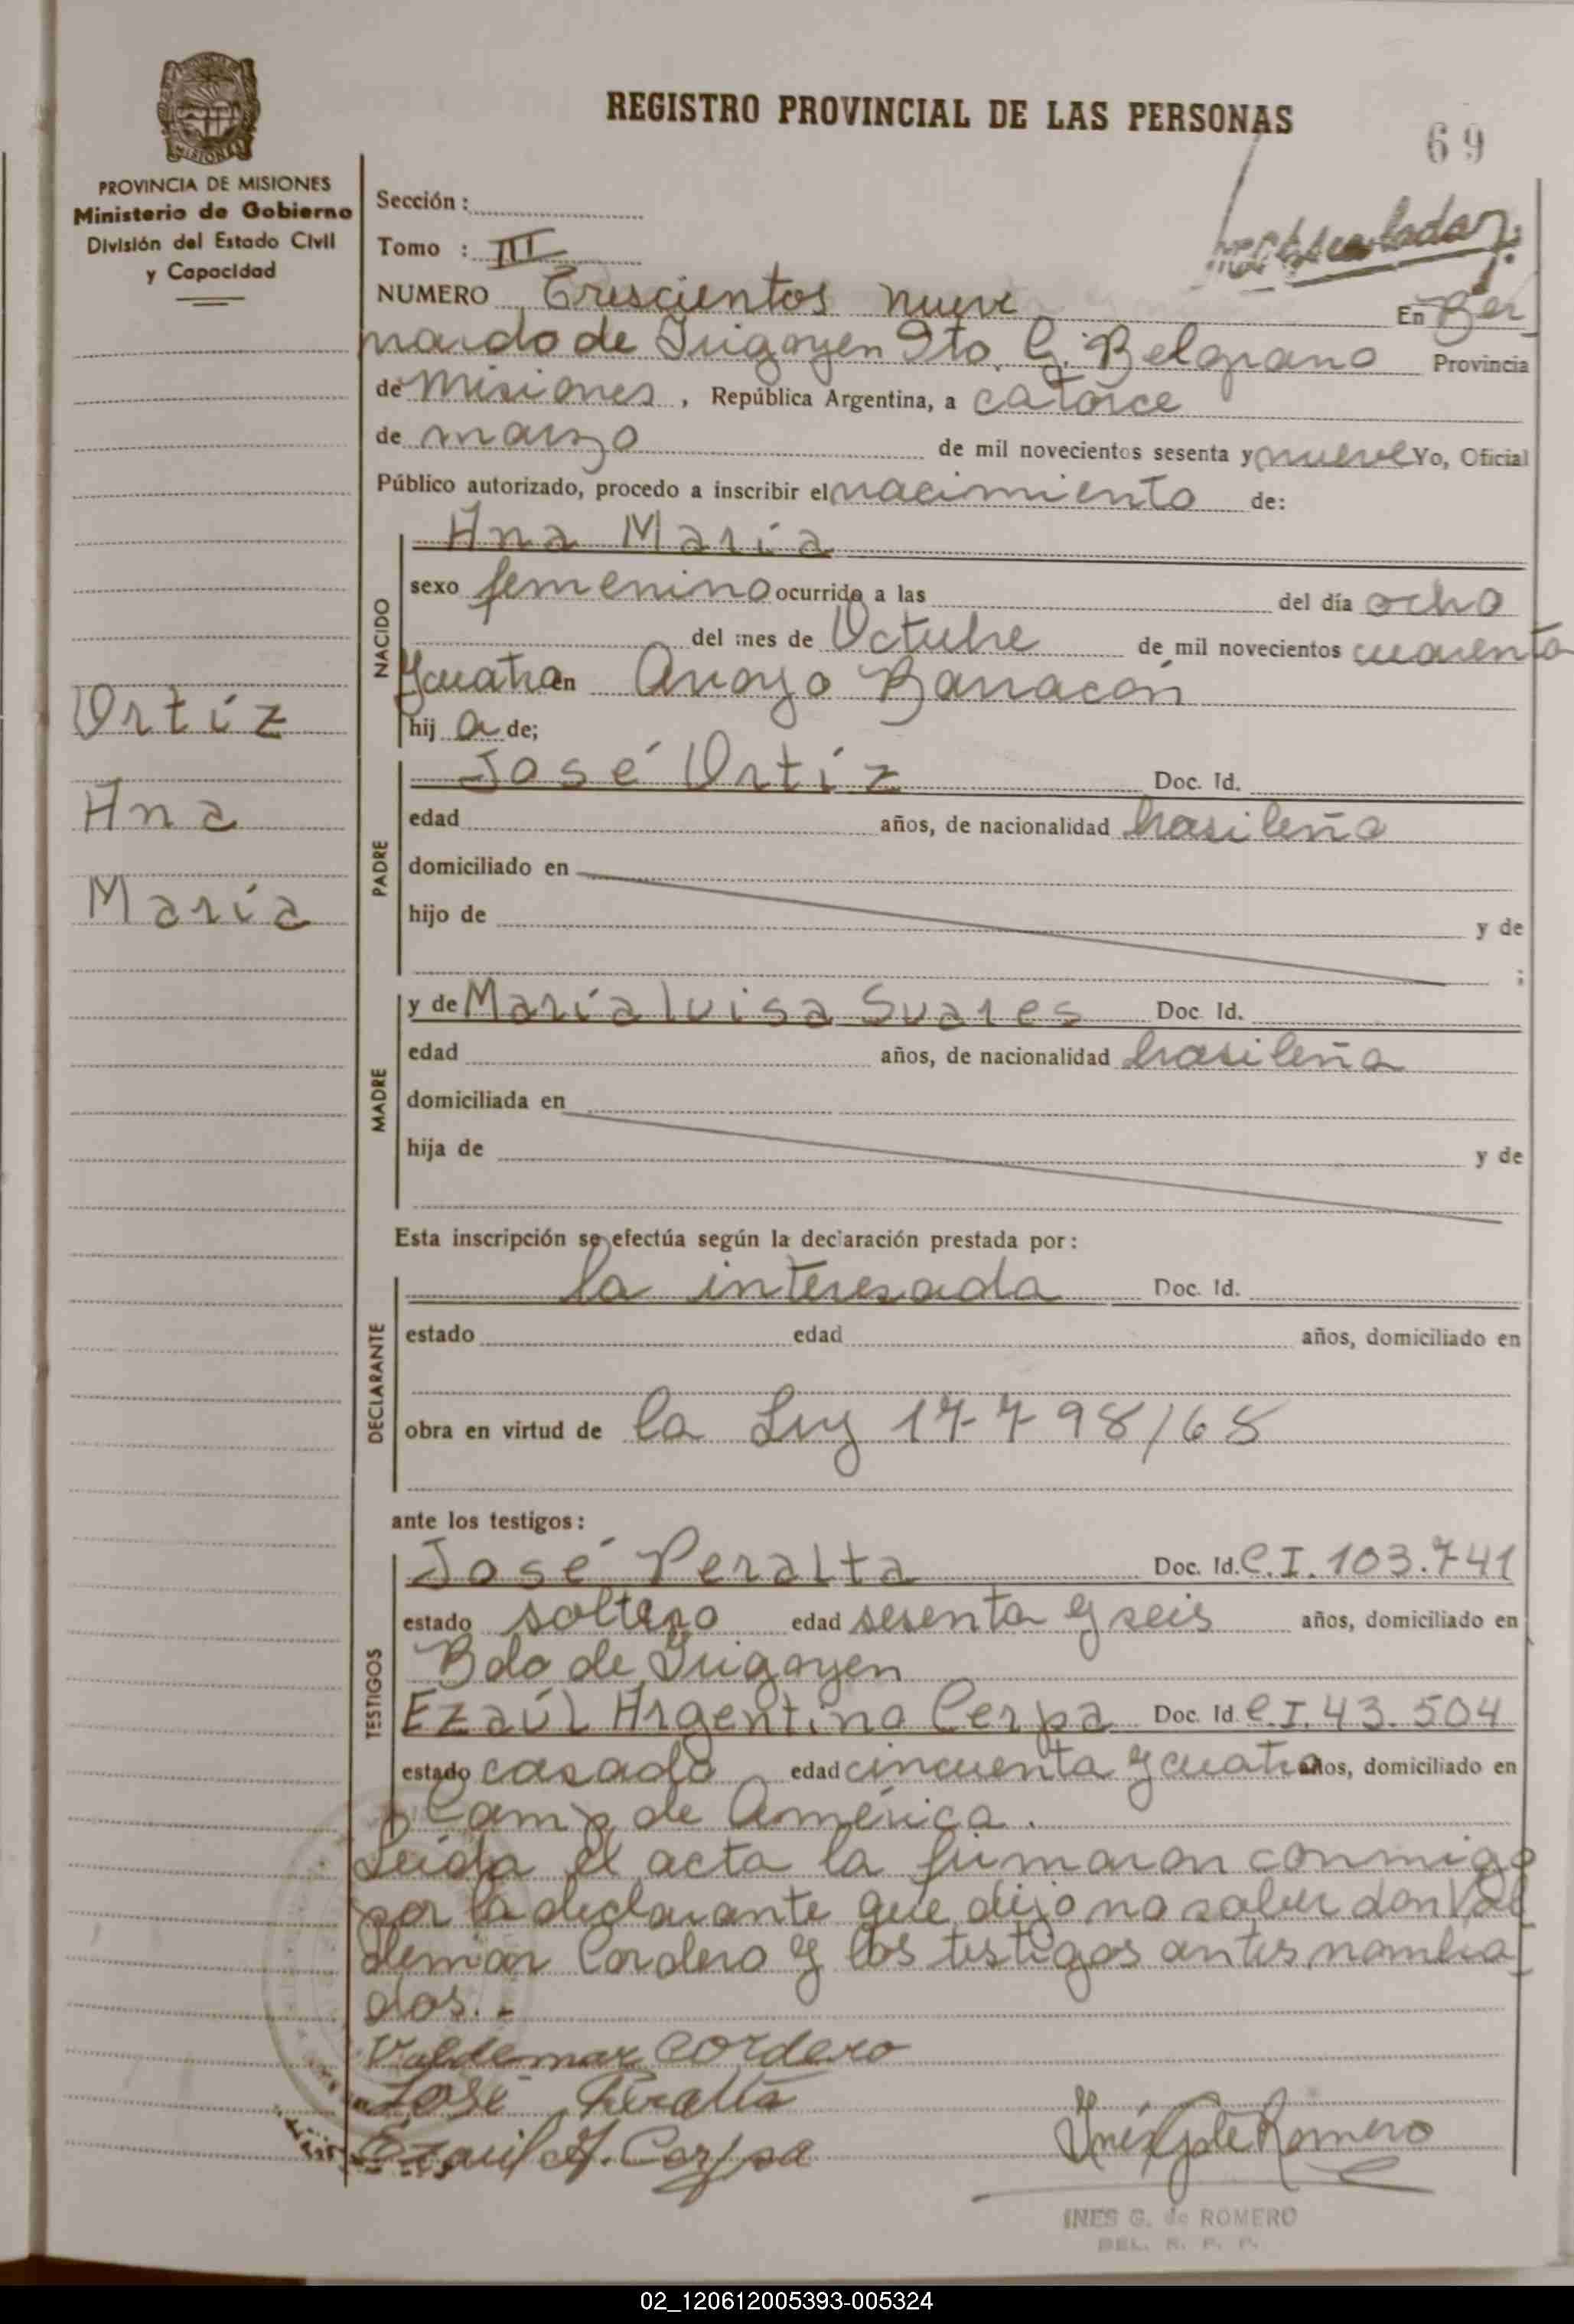 REGISTRO PROVINCIAL DE LAS PERSONAS
69
MISIONES
PROVINCIA DE MISIONES
Ministerio de Gobierno
División del Estado Civil
y Capacidad
Sección :
Tomo : III
NUMERO Trescientos nueve En Ber
nardo de Irigoyen Dto. G. Belgrano Provincia
de Misiones , República Argentina, a catorce
de marzo de mil novecientos sesenta y nueve Yo, Oficial
Público autorizado, procedo a inscribir el nacimiento de:
NACIDO
Ana María
sexo femenino ocurrido a las del día ocho
del mes de Octubre de mil novecientos cuarenta
y cuatro en Arroyo Barracón
hij a de;
Ortíz
Ana
María
PADRE
José Ortíz Doc. Id.
edad años, de nacionalidad brasileña
domiciliado en
hijo de y de
;
MADRE
y de María luisa Suares Doc. Id.
edad años, de nacionalidad brasileña
domiciliada en
hija de y de
Esta inscripción se efectúa según la declaración prestada por :
DECLARANTE
la interesada Doc. Id.
estado edad años, domiciliado en
obra en virtud de la Ley 17-798/68
ante los testigos :
TESTIGOS
José Peralta Doc. Id. C.I. 103.741
estado soltero edad sesenta y seis años, domiciliado en
Bdo de Irigoyen
Ezaúl Argentino Cerpa Doc. Id. C.I. 43.504
estado casado edad cincuenta y cuatro años, domiciliado en
Camp. de América.
Leída el acta la firmaron conmigo
por la declarante que dijo no saber don Val
demar Cordero y los testigos antes nombra
dos.-
Valdemar Cordero
José Peralta
Ezaul A. Cerpa
Inés G de Romero
INES G. de ROMERO
DEL. R. P. P.
02_120612005393-005324